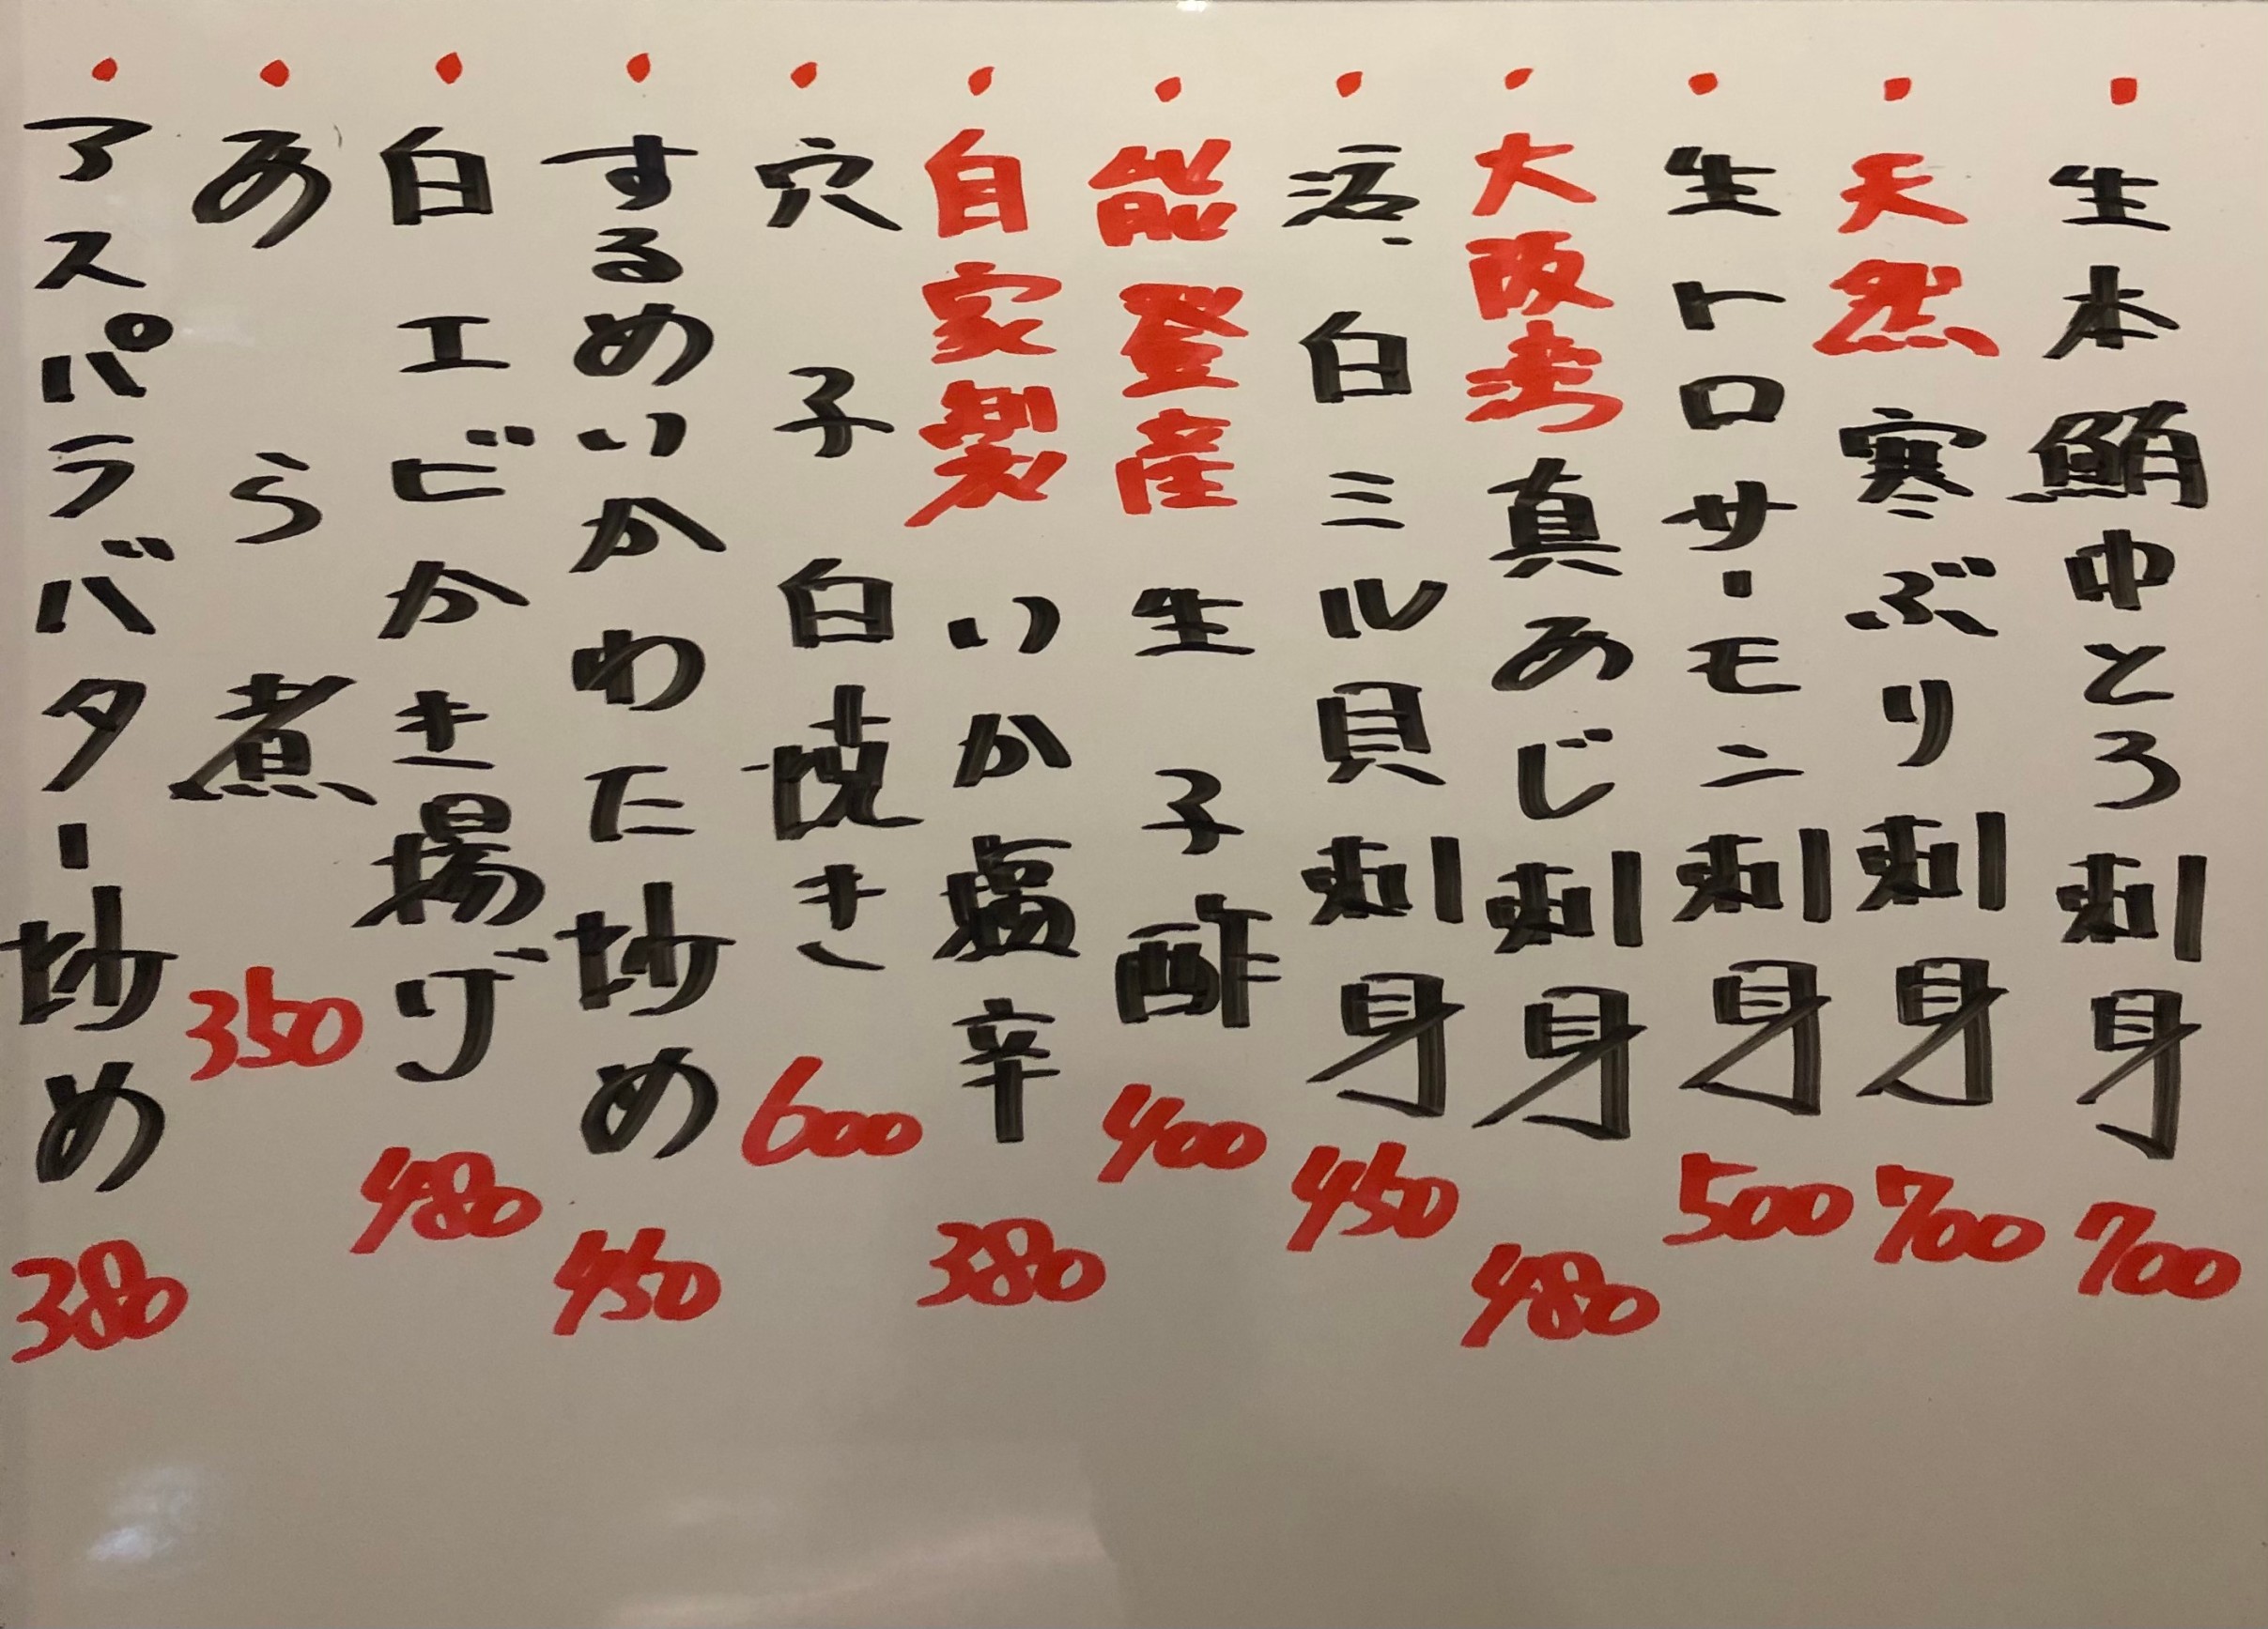 ・生本鮪中とろ刺身 700
・天然寒ぶり刺身 700
・生トロサーモン刺身 500
・大阪湾真あじ刺身 480
・活〆白ミル貝刺身 450
・能登産生子酢 400
・自家製いか塩辛 380
・穴子白焼き 600
・するめいかわた炒め 450
・白エビかき揚げ 480
・あら煮 350
・アスパラバター炒め 380